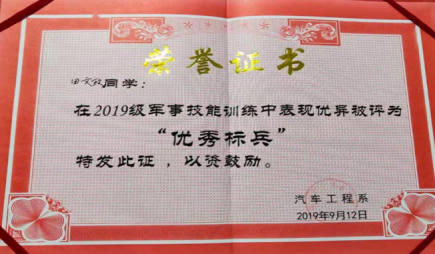 荣誉证书
同学：
在2019级军事技能训练中表现优异被评为
“优秀标兵”
特发此证，以资鼓励。
汽车工程系
2019年9月12日